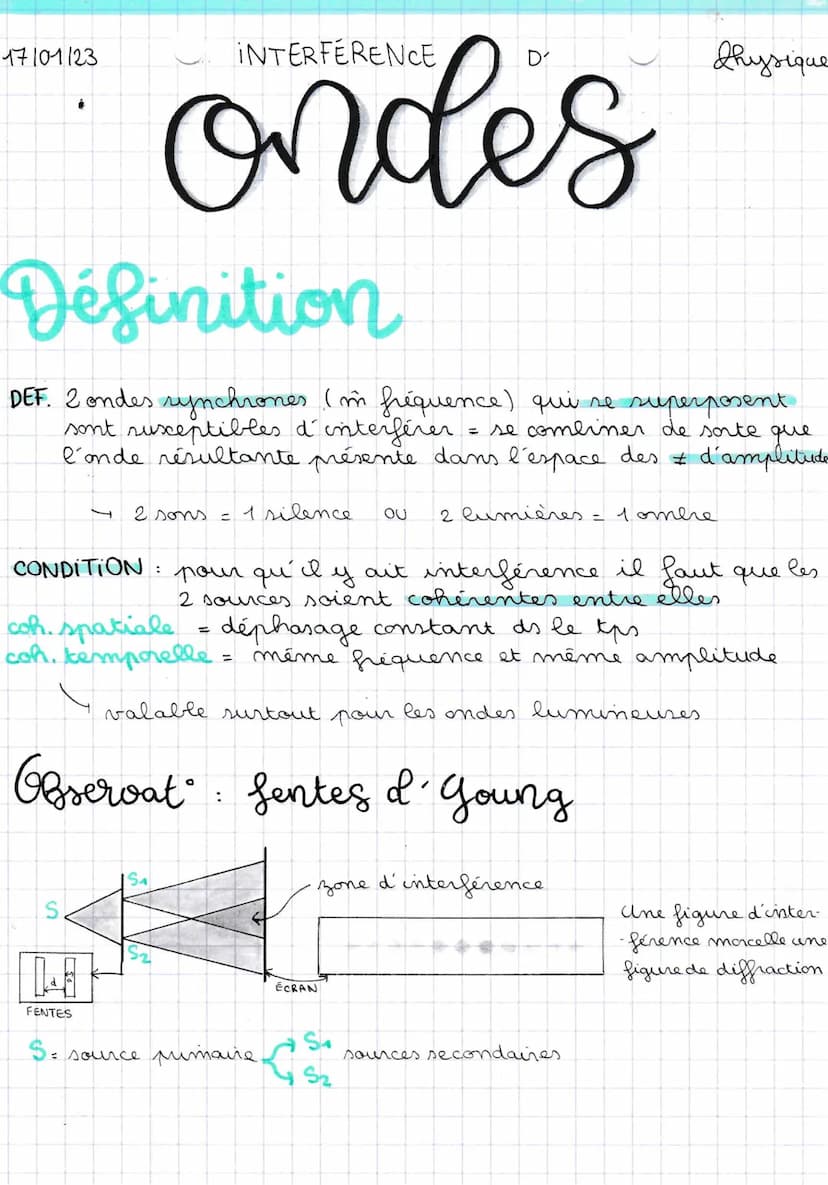 17/01/23 INTERFÉRENCE D' Physique
ondes
Définition
DEF. 2 ondes synchrones (m̂ fréquence) qui se superposent
sont susceptibles d'interférer = se combiner de sorte que
l'onde résultante présente dans l'espace des ≠ d'amplitude
→ 2 sons = 1 silence OU 2 lumières = 1 ombre
CONDITION : pour qu'il y ait interférence il faut que les
2 sources soient cohérentes entre elles
coh. spatiale = déphasage constant ds le tps
coh. temporelle = même fréquence et même amplitude
valable surtout pour les ondes lumineuses
Observat° : fentes d'Young
S1
zone d'interférence
S
Une figure d'inter-
-férence morcelle une
figure de diffraction
S2
d
a
ÉCRAN
FENTES
S = source primaire S1 sources secondaires
S2